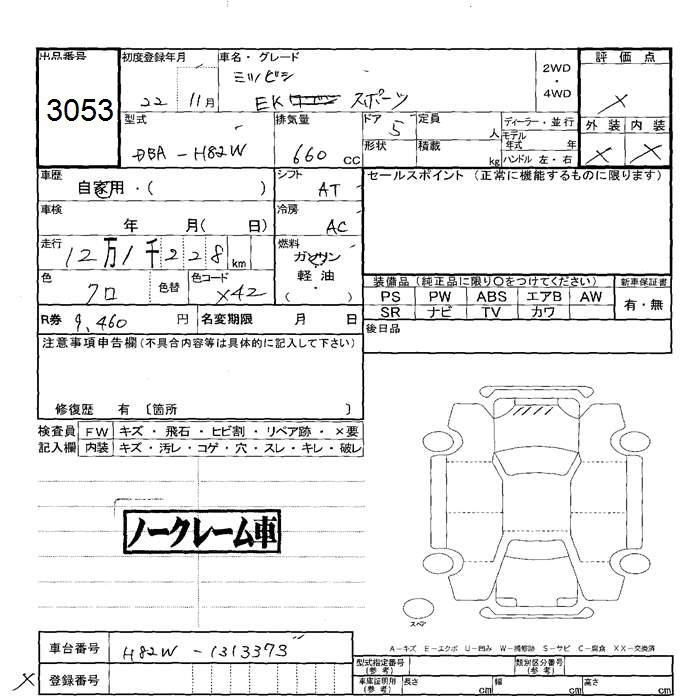 出品番号
3053
初度登録年月
22 11月
車名・グレード
ミツビシ
EK スポーツ
2WD
・
4WD
評価点
×
外装 内装
× ×
型式
DBA-H82W
排気量
660 CC
ドア
5
形状
定員
人
積載
kg
ディーラー・並行
モデル
年式 年
ハンドル 左・右
車歴
自家用・( )
シフト
AT
車検
年 月( 日)
冷房
AC
走行
12万1千228km
燃料
ガソリン
軽油
( )
色
クロ
色替
色コード
X42
R券 9,460 円
名変期限 月 日
セールスポイント (正常に機能するものに限ります)
装備品 (純正品に限り〇をつけてください)
PS PW ABS エアB AW
SR ナビ TV カワ
新車保証書
有・無
後日品
注意事項申告欄 (不具合内容等は具体的に記入して下さい)
修復歴 有 〔箇所 〕
検査員
記入欄
FW キズ・飛石・ヒビ割・リペア跡・×要
内装 キズ・汚レ・コゲ・穴・スレ・キレ・破レ
ノークレーム車
スペア
A-キズ E-エクボ U-凹み W-補修跡 S-サビ C-腐食 XX-交換済
車台番号 H82W-1313373
× 登録番号
型式指定番号
(参考)
類別区分番号
(参考)
車庫証明用
(参考)
長さ cm
幅 cm
高さ cm